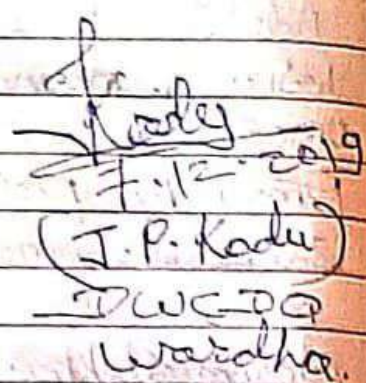 17.12.2019
(J.P. Kadu)
DWCDO
Wardha.